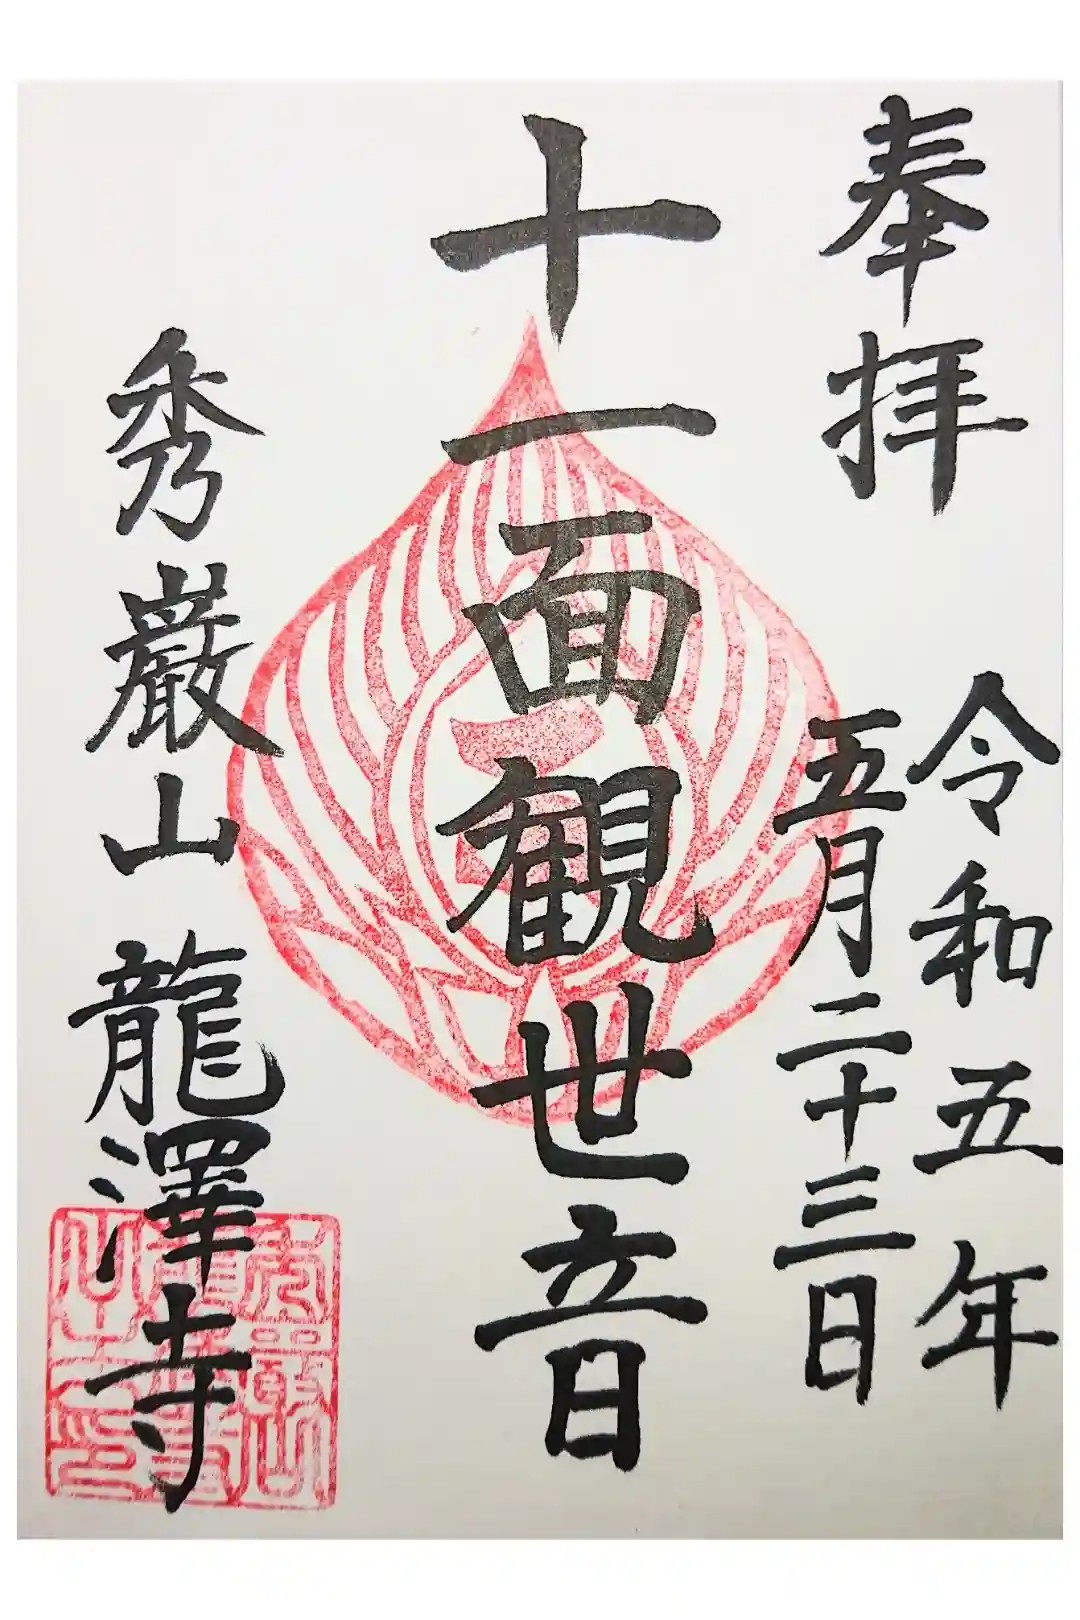 奉拝
令和五年
五月二十三日
十一面観世音
秀巌山 龍澤寺